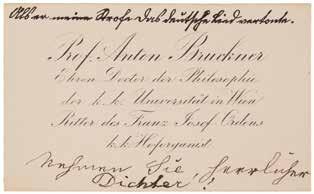 Als er meine Strofe das deutsche Lied vertonte.
Prof. Anton Bruckner
Ehren Doctor der Philosophie
der k. k. Universität in Wien
Ritter des Franz Josef Ordens
k. k. Hoforganist.
Nehmen Sie, herrlicher
Dichter!